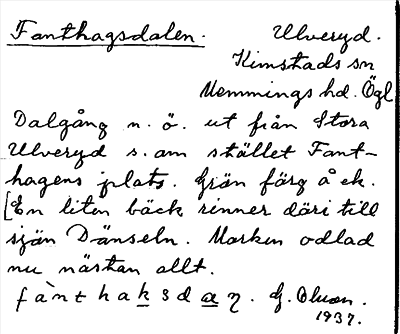 Fanthagsdalen. Ulveryd.
Kimstads sn
Memmings hd. Ögl
Dalgång n. ö. ut från Stora
Ulveryd s. om stället Fant-
hagens plats. Grän färg å ek.
[En liten bäck rinner däri till
sjön Dänseln. Marken odlad
nu nästan allt.
fànthaksdaɳ. G. Olson.
1937.